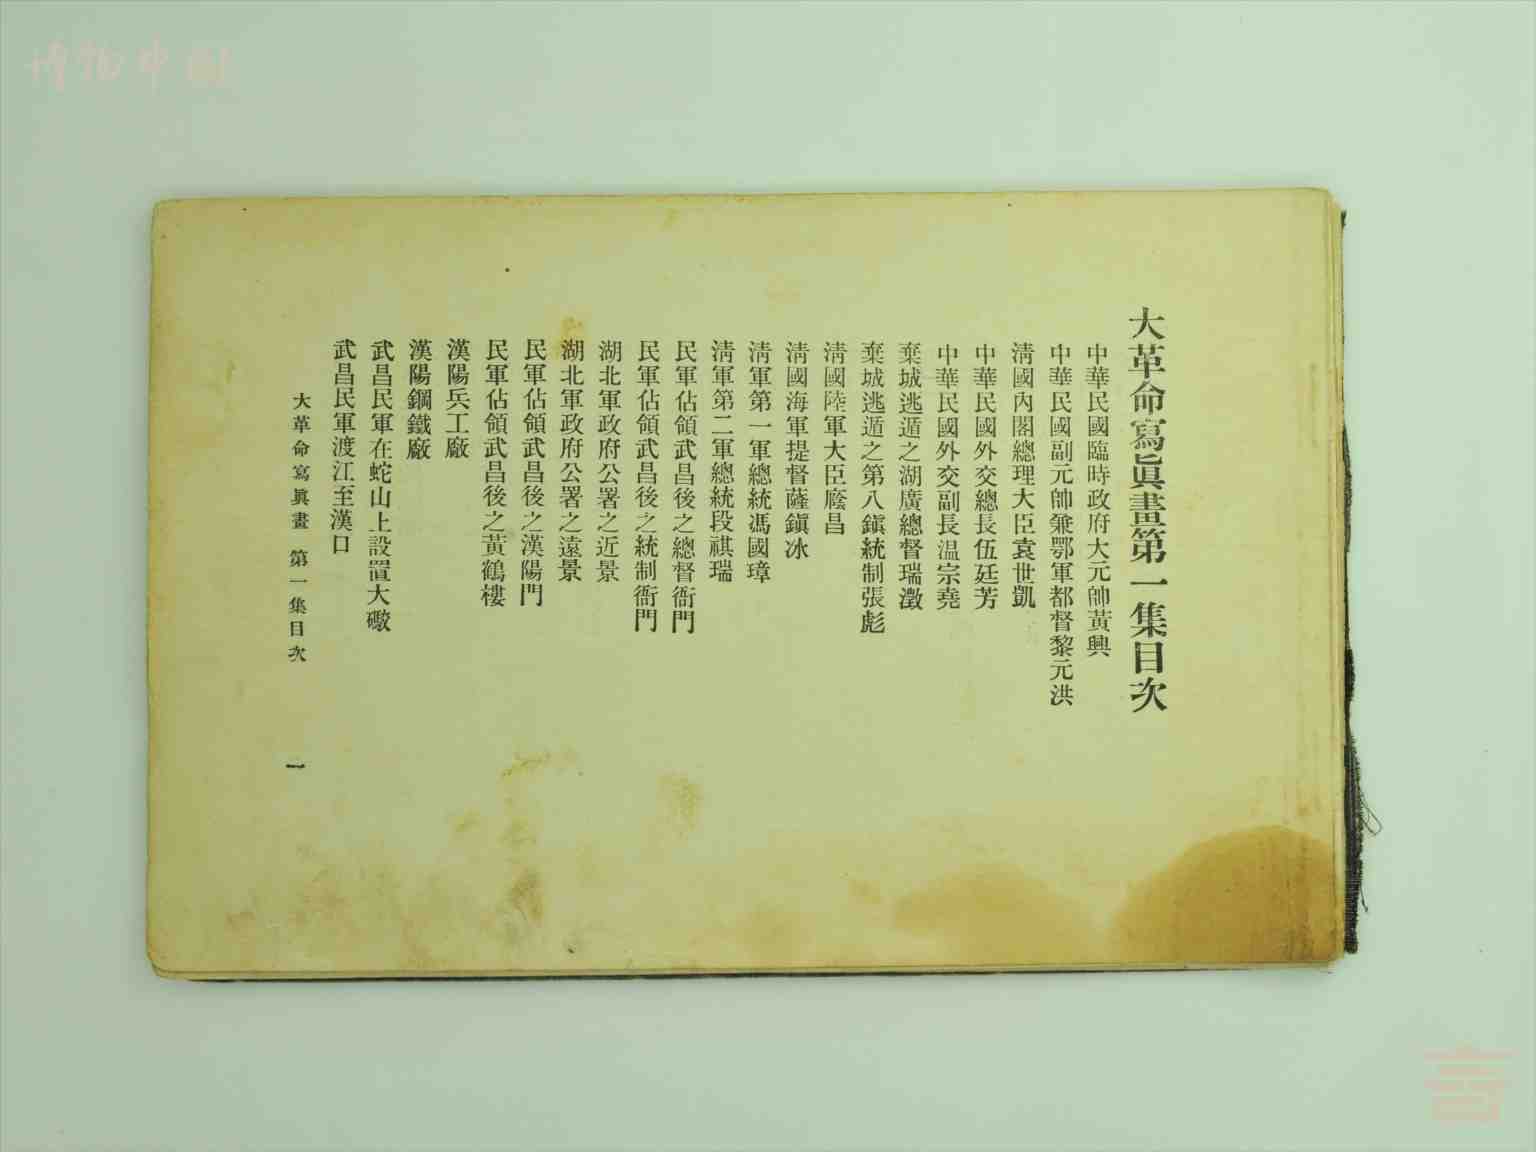 大革命寫眞畫第一集目次
中華民國臨時政府大元帥黃興
中華民國副元帥兼鄂軍都督黎元洪
淸國內閣總理大臣袁世凱
中華民國外交總長伍廷芳
中華民國外交副長温宗堯
棄城逃遁之湖廣總督瑞澂
棄城逃遁之第八鎭統制張彪
淸國陸軍大臣廕昌
淸國海軍提督薩鎭冰
淸軍第一軍總統馮國璋
淸軍第二軍總統段祺瑞
民軍佔領武昌後之總督衙門
民軍佔領武昌後之統制衙門
湖北軍政府公署之近景
湖北軍政府公署之遠景
民軍佔領武昌後之漢陽門
民軍佔領武昌後之黃鶴樓
漢陽兵工廠
漢陽鋼鐵廠
武昌民軍在蛇山上設置大礮
武昌民軍渡江至漢口
大革命寫眞畫 第一集目次 一
博物中国